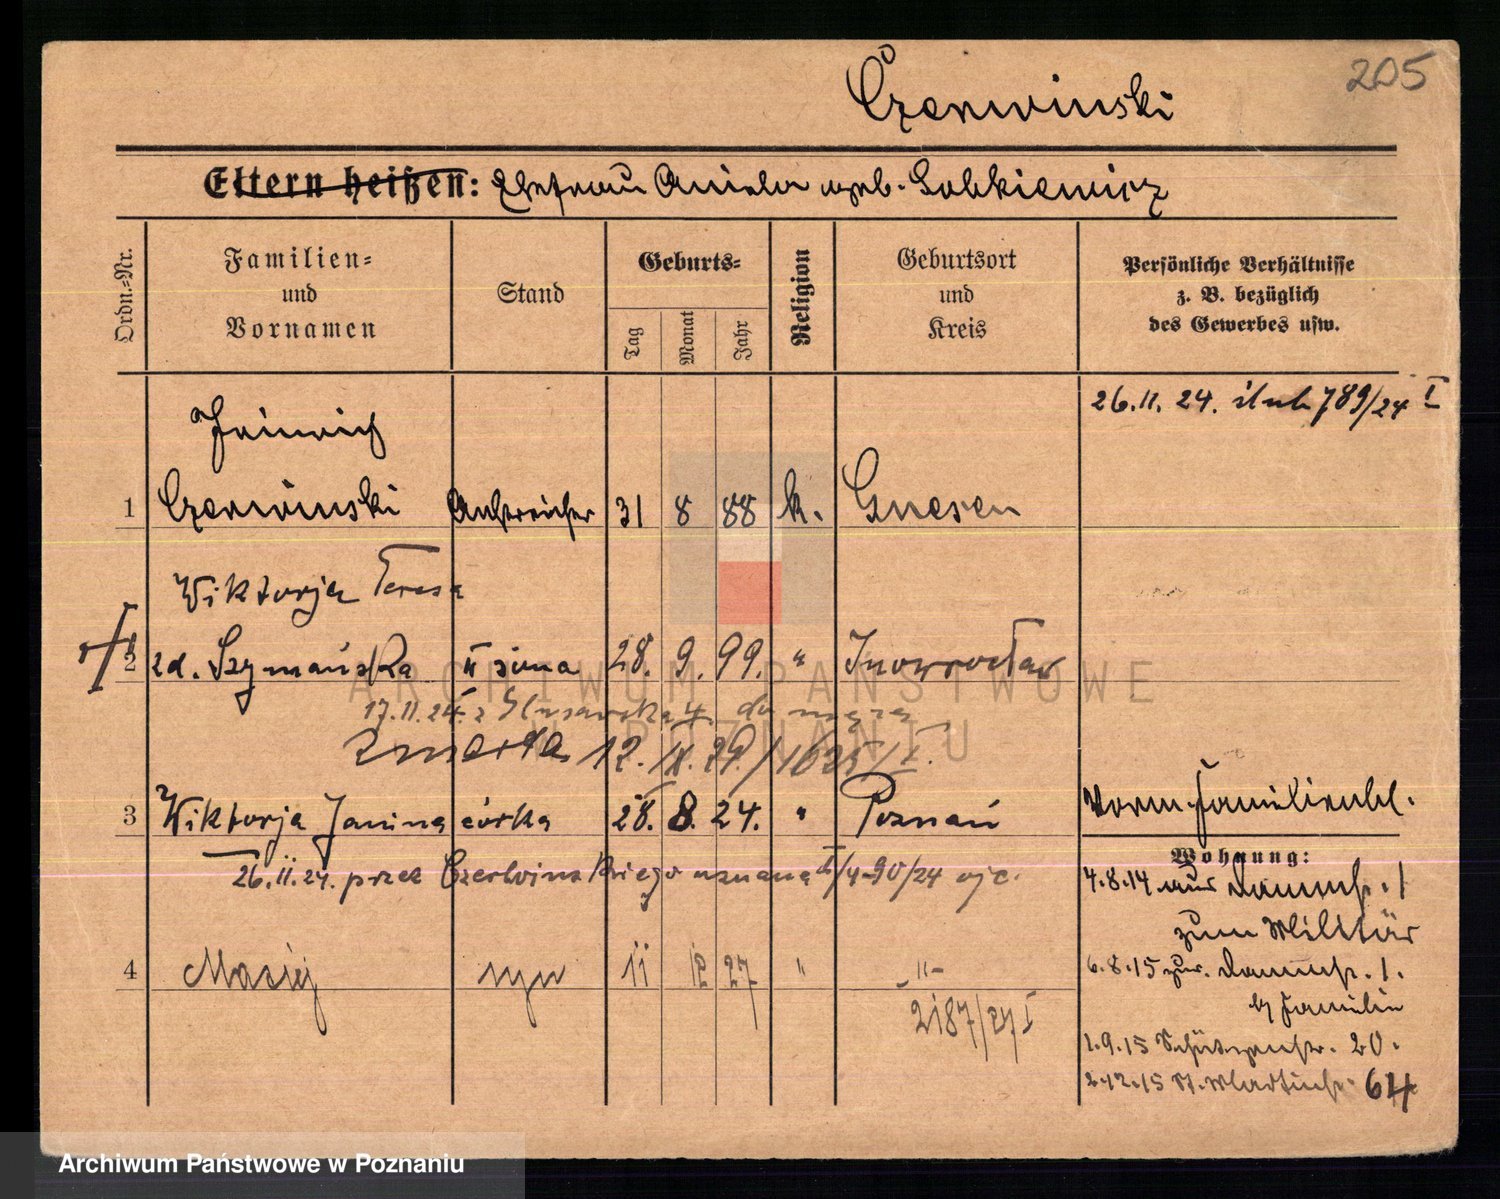 205
Czerwinski
Eltern heißen: Ehefrau Aniela geb. Sobkiewicz
Ordn.-Nr.
Familien-
und
Vornamen
Stand
Geburts-
Tag
Monat
Jahr
Religion
Geburtsort
und
Kreis
Persönliche Verhältnisse
z. B. bezüglich
des Gewerbes usw.
26.11.24. ślub 789/24 I
Heinrich
1 Czerwinski Anstreicher 31 8 88 k. Gnesen
Wiktorja Teresa
2 zd. Szymańska II żona 28. 9. 99. " Inowrocław
17.11.24. z 4. do męża
zmarła 12. 29./1635/I.
3 Wiktorja Janina córka 28. 8. 24. " Poznań
Vorm. Familienbl.
26.11.24. przez Czerwinskiego uznana 490/24 ojc.
Wohnung:
4.8.14 aus Dammstr. 1
zum Militär
6.8.15 zur. Dammstr. 1.
b/ Familie
4 Maciej syn 11 12 27 " -"-
2187/27 I
1.9.15 Schützenstr. 20.
2.12.15 St. Martinstr. 64
ARCHIWUM PAŃSTWOWE
W POZNANIU
Archiwum Państwowe w Poznaniu